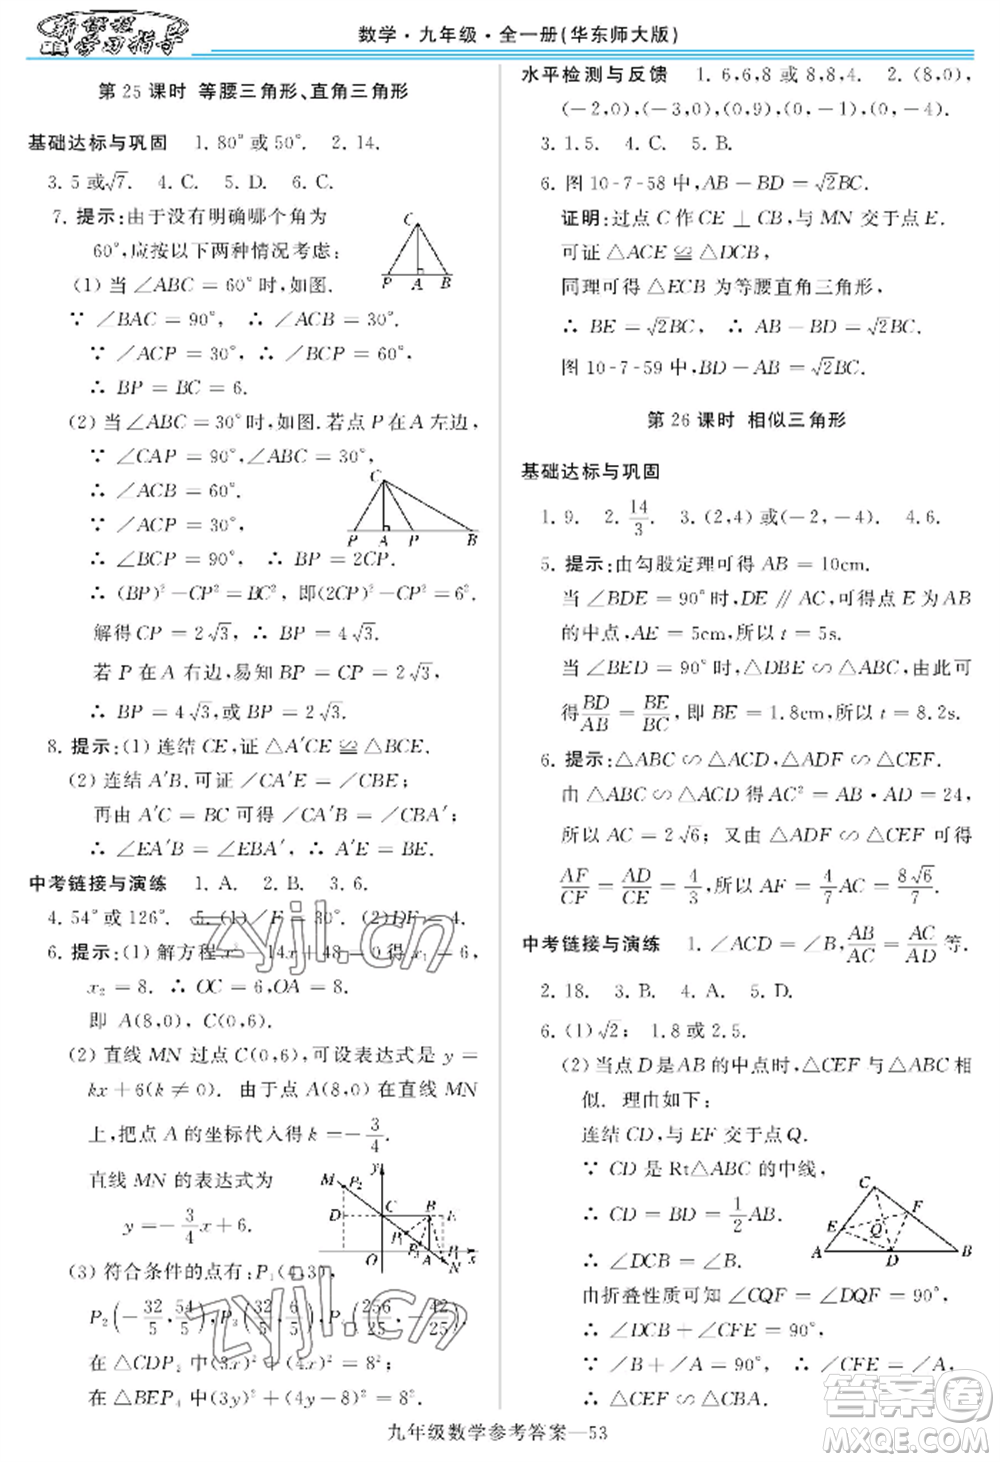 新课程
学习指导
数学·九年级·全一册(华东师大版)
第 25 课时 等腰三角形、直角三角形
基础达标与巩固 1. 80°或 50°. 2. 14.
3. 5 或√7. 4. C. 5. D. 6. C.
7. 提示:由于没有明确哪个角为
60°,应按以下两种情况考虑:
(1) 当 ∠ABC = 60°时,如图.
∵ ∠BAC = 90°, ∴ ∠ACB = 30°.
∵ ∠ACP = 30°, ∴ ∠BCP = 60°.
∴ BP = BC = 6.
C
P A B
(2) 当∠ABC = 30°时,如图. 若点 P 在 A 左边,
∵ ∠CAP = 90°, ∠ABC = 30°.
∴ ∠ACB = 60°.
∵ ∠ACP = 30°,
∴ ∠BCP = 90°, ∴ BP = 2CP.
∴ (BP)² − CP² = BC², 即(2CP)² − CP² = 6².
解得 CP = 2√3, ∴ BP = 4√3.
若 P 在 A 右边,易知 BP = CP = 2√3,
∴ BP = 4√3,或 BP = 2√3.
C
P A P B
8. 提示:(1) 连结 CE,证 △A′CE ≌ △BCE.
(2) 连结 A′B. 可证 ∠CA′E = ∠CBE;
再由 A′C = BC 可得 ∠CA′B = ∠CBA′;
∴ ∠EA′B = ∠EBA′, ∴ A′E = BE.
中考链接与演练 1. A. 2. B. 3. 6.
4. 54°或 126°. 5. (1) ∠F = 30°. (2)DF = 4.
6. 提示:(1) 解方程 x² − 14x + 48 = 0 得 x₁ = 6,
x₂ = 8. ∴ OC = 6,OA = 8.
即 A(8,0), C(0,6).
(2) 直线 MN 过点 C(0,6),可设表达式是 y =
kx + 6(k ≠ 0). 由于点 A(8,0) 在直线 MN
上,把点 A 的坐标代入得 k = −3/4.
直线 MN 的表达式为
y = −3/4x + 6.
M P₂ y
D C B E
P₁ P₃
O A P₄ x
N
(3) 符合条件的点有:P₁(4,3),
P₂(−32/5, 54/5), P₃(32/5, 6/5), P₄(256/25, −42/25)
在 △CDP₂ 中(3x)² + (4x)² = 8²;
在 △BEP₄ 中(3x)² + (4x − 8)² = 8².
水平检测与反馈 1. 6,6,8 或 8,8,4. 2. (8,0),
(−2,0),(−3,0),(0,9),(0,−1),(0,−4).
3. 1.5. 4. C. 5. B.
6. 图 10-7-58 中,AB − BD = √2BC.
证明:过点 C 作 CE ⊥ CB,与 MN 交于点 E.
可证 △ACE ≌ △DCB,
同理可得 △ECB 为等腰直角三角形,
∴ BE = √2BC, ∴ AB − BD = √2BC.
图 10-7-59 中,BD − AB = √2BC.
第 26 课时 相似三角形
基础达标与巩固
1. 9. 2. 14/3. 3. (2,4) 或(−2,−4). 4. 6.
5. 提示:由勾股定理可得 AB = 10cm.
当 ∠BDE = 90°时,DE ∥ AC,可得点 E 为 AB
的中点,AE = 5cm,所以 t = 5s.
当 ∠BED = 90°时,△DBE ∽ △ABC,由此可
得BD/AB = BE/BC,即 BE = 1.8cm,所以 t = 8.2s.
6. 提示:△ABC ∽ △ACD,△ADF ∽ △CEF.
由 △ABC ∽ △ACD 得 AC² = AB · AD = 24,
所以 AC = 2√6;又由 △ADF ∽ △CEF 可得
AF/CF = AD/CE = 4/3,所以 AF = 4/7 AC = 8√6/7
中考链接与演练 1. ∠ACD = ∠B, AB/AC = AC/AD 等.
2. 18. 3. B. 4. A. 5. D.
6. (1)√2; 1.8 或 2.5.
(2) 当点 D 是 AB 的中点时,△CEF 与 △ABC 相
似. 理由如下:
连结 CD,与 EF 交于点 Q.
∵ CD 是 Rt△ABC 的中线,
∴ CD = BD = 1/2 AB.
∴ ∠DCB = ∠B.
由折叠性质可得 ∠CQF = ∠CFE = 90°,
∴ ∠DCB + ∠CFE = 90°,
∵ ∠B + ∠A = 90°, ∴ ∠CFE = ∠A,
∴ △CEF ∽ △CBA.
C
E Q F
A D B
九年级数学参考答案—53
zyjl.cn
zyjl.cn
答案圈
MXQE.COM